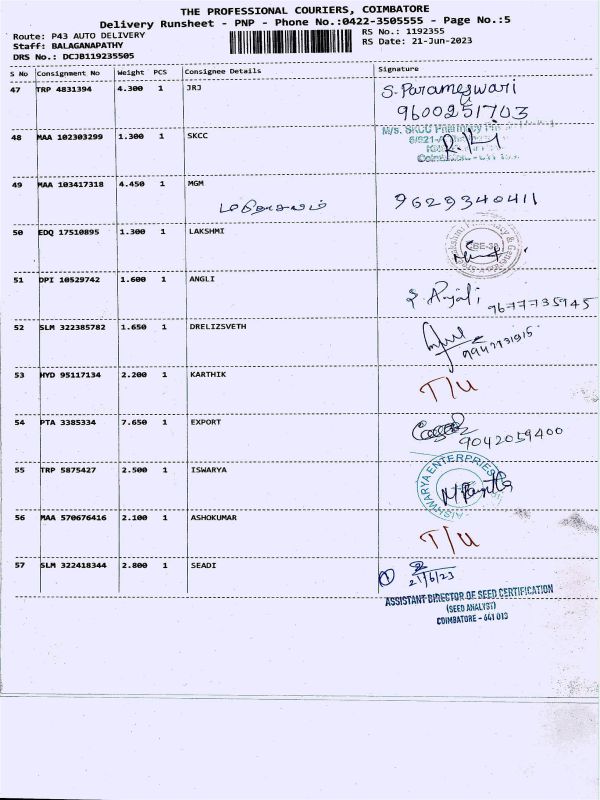 THE PROFESSIONAL COURIERS, COIMBATORE
Delivery Runsheet - PNP - Phone No.:0422-3505555 - Page No.:5
Route: P43 AUTO DELIVERY RS No.: 1192355
Staff: BALAGANAPATHY RS Date: 21-Jun-2023
DRS No.: DCJB119235505
S No Consignment No Weight PCS Consignee Details Signature
47 TRP 4831394 4.300 1 JRJ S. Parameswari
9600251703
M/s. SKCC Pharmacy
48 MAA 102303299 1.300 1 SKCC
Coimbatore
49 MAA 103417318 4.450 1 MGM
9629340411
50 EDQ 17510895 1.300 1 LAKSHMI
51 DPI 10529742 1.600 1 ANGLI
Anjali 9677735945
52 SLM 322385782 1.650 1 DRELIZSVETH
53 HYD 95117134 2.200 1 KARTHIK T/U
54 PTA 3385334 7.650 1 EXPORT
9042059400
55 TRP 5875427 2.500 1 ISWARYA AISHWARYA ENTERPRISES
56 MAA 570676416 2.100 1 ASHOKUMAR T/U
57 SLM 322418344 2.800 1 SEADI 1
21/6/23
ASSISTANT DIRECTOR OF SEED CERTIFICATION
(SEED ANALYST)
COIMBATORE - 641 013